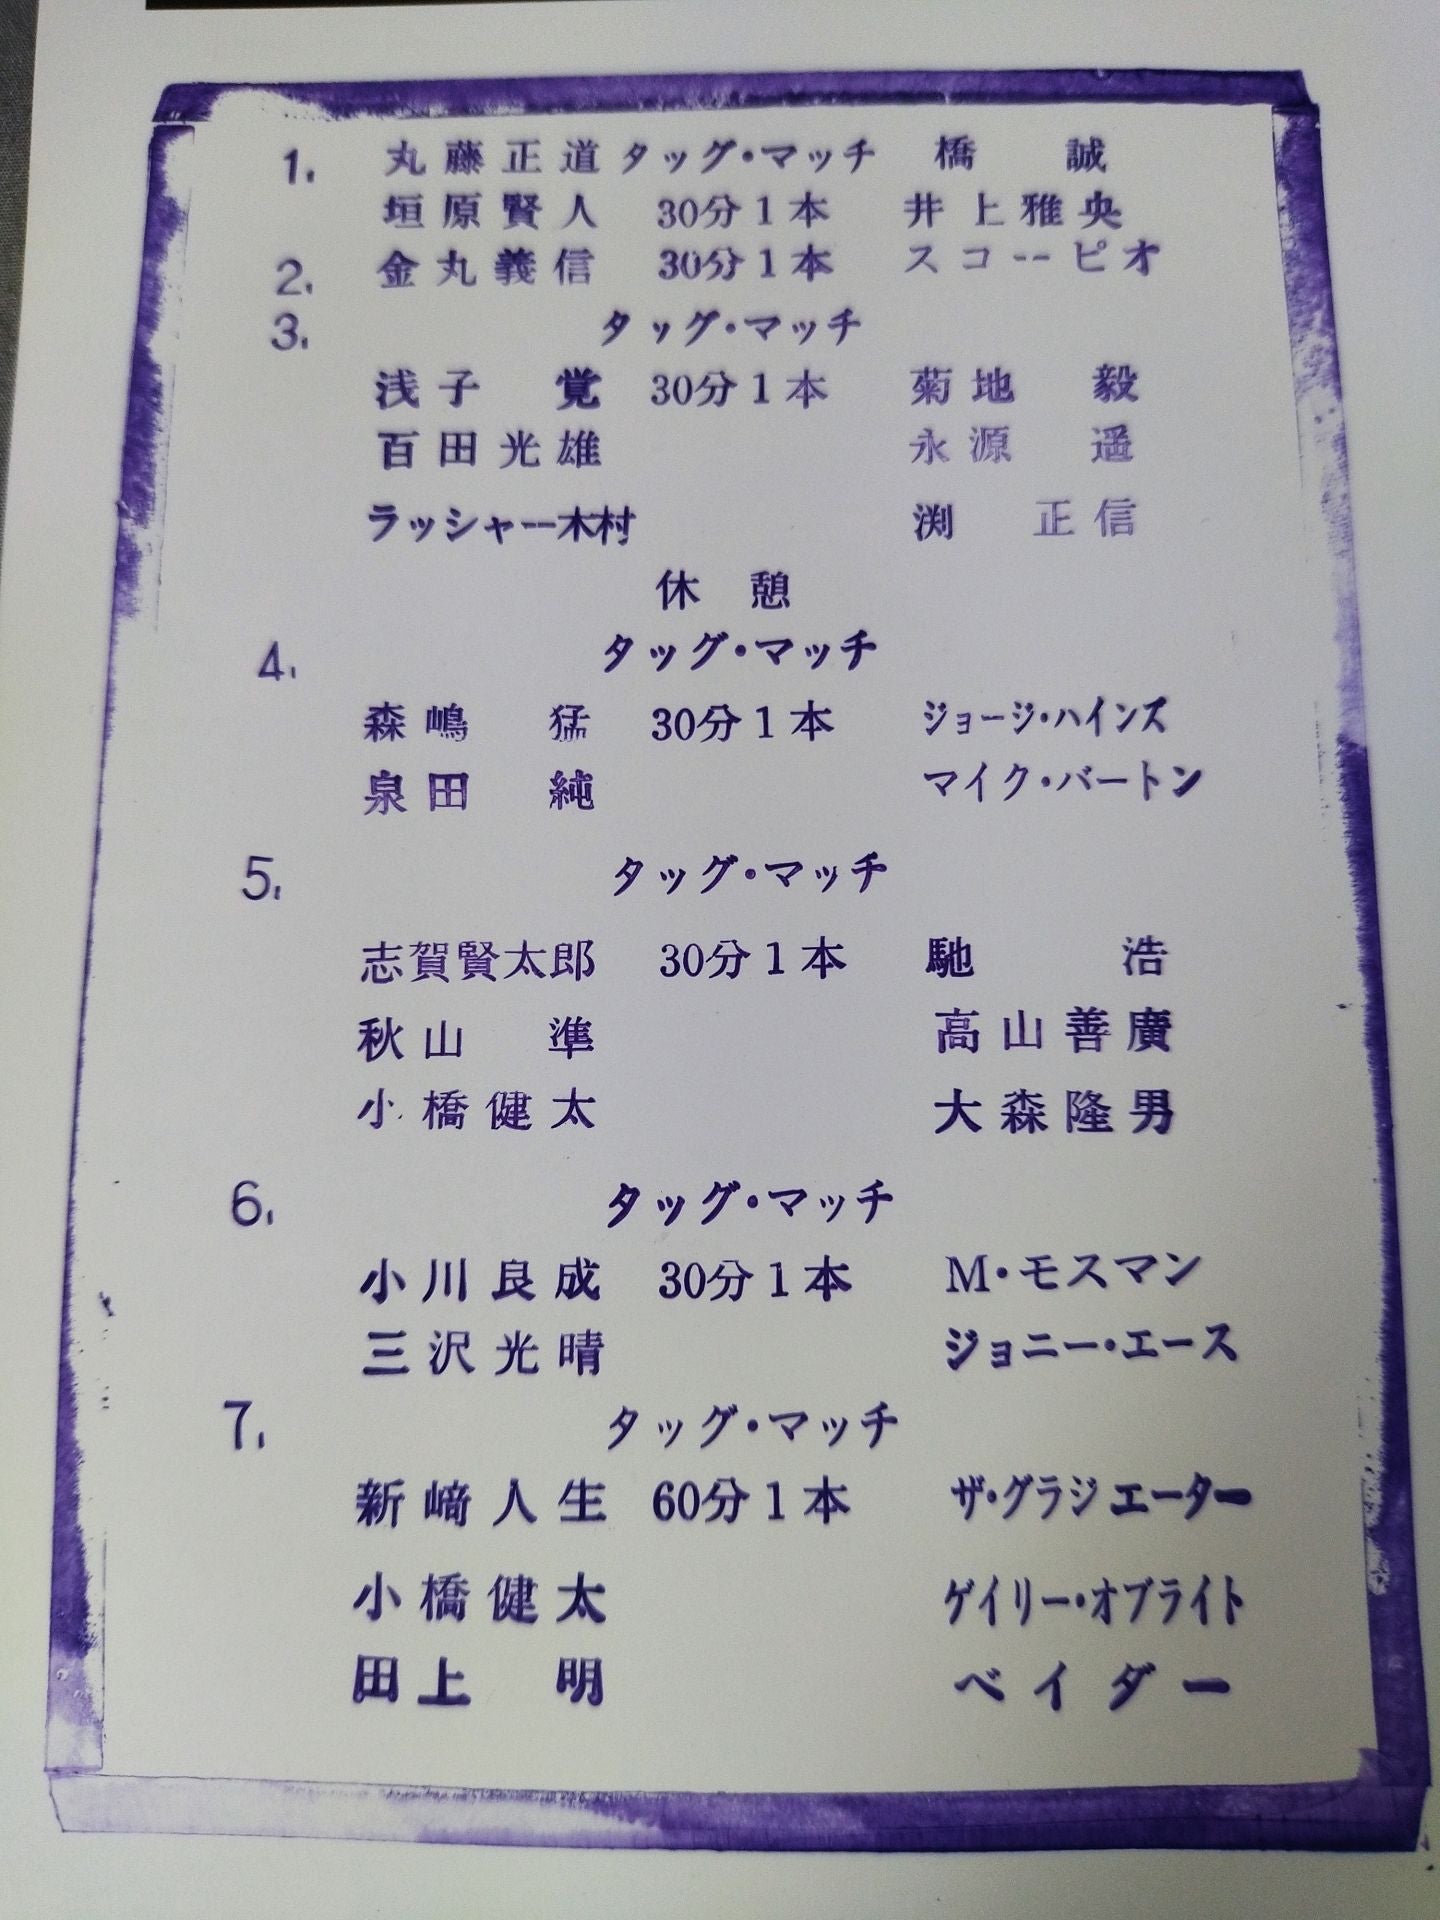 1. 丸藤正道 タッグ・マッチ 橋 誠
垣原賢人 30分1本 井上雅央
2. 金丸義信 30分1本 スコーピオ
3. タッグ・マッチ
浅子 覚 30分1本 菊地 毅
百田光雄 永源 遥
ラッシャー木村 渕 正信
休 憩
4. タッグ・マッチ
森嶋 猛 30分1本 ジョージ・ハインズ
泉田 純 マイク・バートン
5. タッグ・マッチ
志賀賢太郎 30分1本 馳 浩
秋山 準 高山善廣
小橋健太 大森隆男
6. タッグ・マッチ
小川良成 30分1本 M・モスマン
三沢光晴 ジョニー・エース
7. タッグ・マッチ
新崎人生 60分1本 ザ・グラジエーター
小橋健太 ゲイリー・オブライト
田上 明 ベイダー